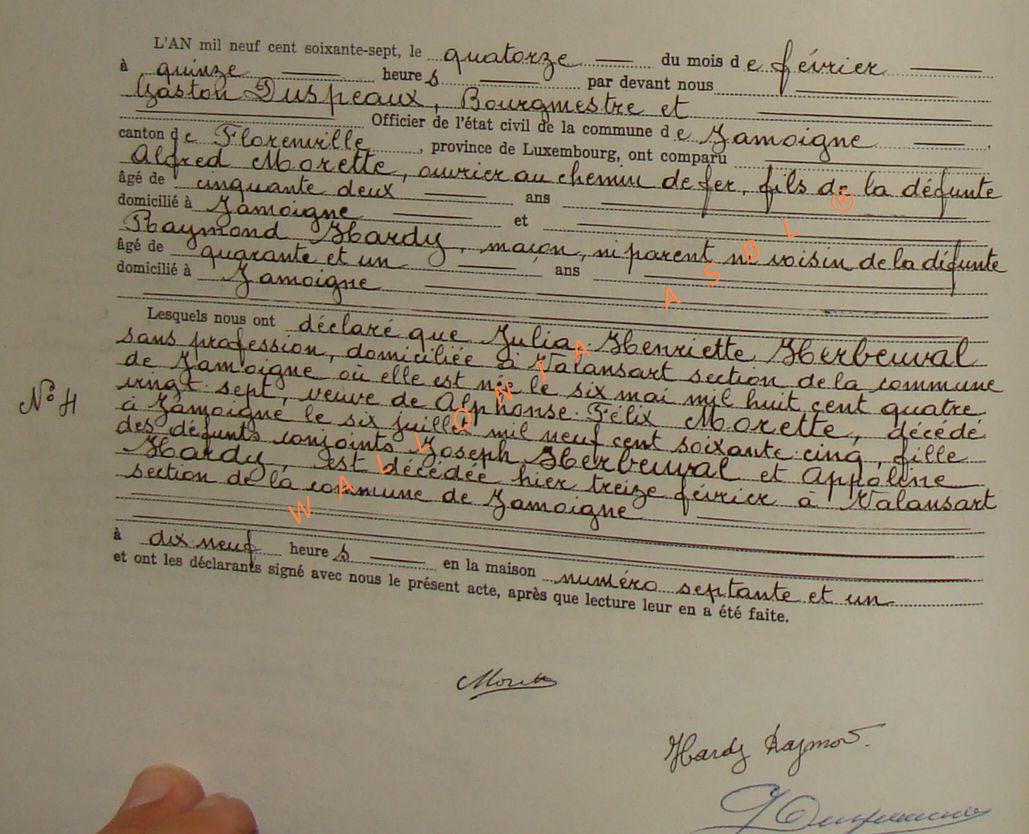 L'AN mil neuf cent soixante-sept, le quatorze du mois de février
à quinze heures par devant nous
Gaston Duspeaux, Bourgmestre et
Officier de l'état civil de la commune de Jamoigne
canton de Florenville, province de Luxembourg, ont comparu
Alfred Morette, ouvrier au chemin de fer, fils de la défunte
âgé de cinquante deux ans
domicilié à Jamoigne et
Raymond Hardy, maçon, ni parent ni voisin de la défunte
âgé de quarante et un ans
domicilié à Jamoigne
Lesquels nous ont déclaré que Julia-Henriette Herbeuval
sans profession, domiciliée à Valansart section de la commune
de Jamoigne où elle est née le six mai mil huit cent quatre
N° 4
vingt-sept, veuve de Alphonse-Félix Morette, décédé
à Jamoigne le six juillet mil neuf cent soixante-cinq, fille
des défunts conjoints Joseph Herbeuval et Appoline
Hardy, est décédée hier treize février à Valansart
section de la commune de Jamoigne
à dix-neuf heures en la maison numéro septante et un
et ont les déclarants signé avec nous le présent acte, après que lecture leur en a été faite.
Hardy Raymond
WALLONIA ASBL ®